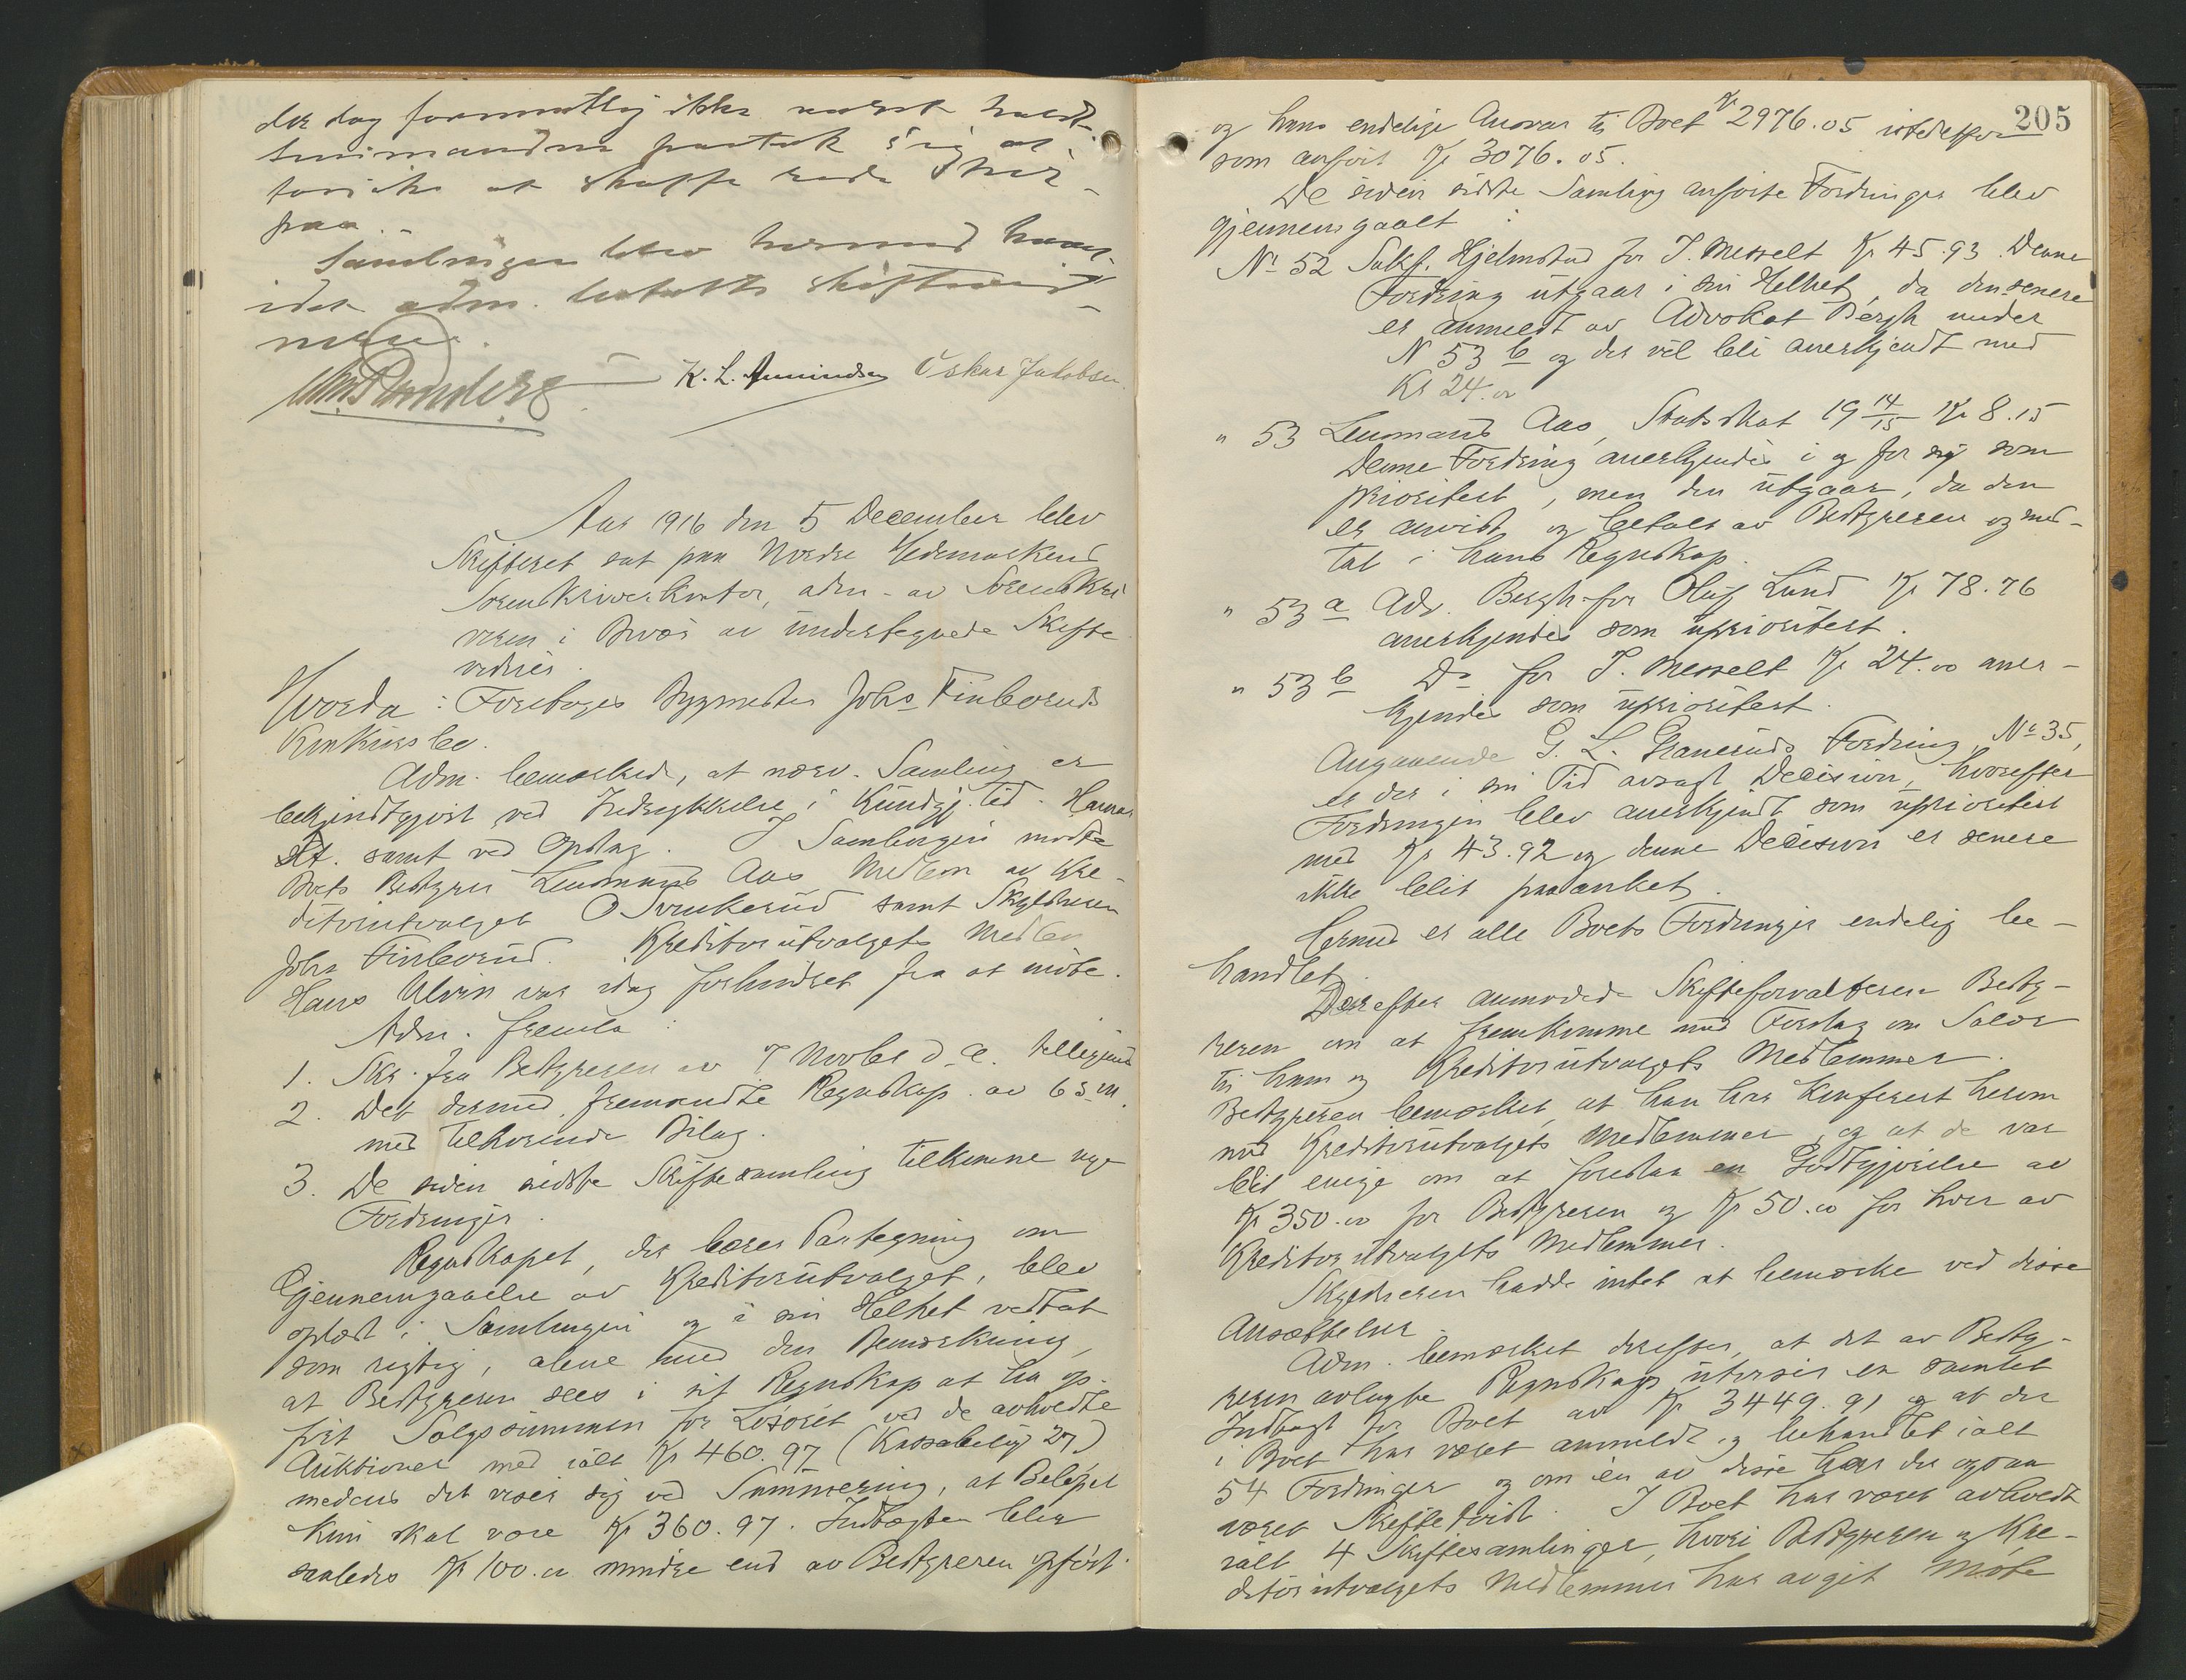 der dog formentlig ikke
paatok sig at
forsøke at skaffe rede
paa.
Samlingen blev hermed hævet
idet adm. betalte skiftevid-
nerne.
K. L. Amundsen Oskar Jakobsen
Aar 1916 den 5 December blev
Skifteret sat paa Nordre Hedemarkens
Sorenskriverkontor, adm. av Sorenskri
veren i Avær av undertegnede Skifte
vidner.
Hvorda: Foretoges Bygmester Johs Finborud's
Konkursbo.
Adm. bemærkede, at nærv. Samling er
bekjendtgjort ved Indrykkelse i Kundgj. tid. Hamar
Stt. samt ved Opslag. I Samlingen møtte
Boets Bestyrer Lensmand Aas Medlem av Kre-
ditorutvalget O Svenkerud samt Skyldneren
Johs Finborud. Kreditorutvalgets Medlem
Hans Alvin var idag forhindret fra at møte.
Adm. fremla:
1. Skr. fra Bestyreren av 7 Novbr d. A. tillikemed
2. Det dermed fremsendte Regnskap av 6 s. m.
med tilhørende Bilag.
3. De siden sidste Skiftesamling tilkomne nye
Fordringer.
Regnskapet, der bærer Paategning om
Gjennemgaaelse av Kreditorutvalget, blev
oplæst i Samlingen og i sin Helhet vedtat
som rigtig, alene med den Bemærkning,
at Bestyreren sees i sit Regnskap at ha op-
ført Salgssummen for Løsøret ved de avholdte
Auktioner med ialt Kr 460.97 (Kassabilag 27)
medens det viser sig ved Summering, at Beløpet
kun skal være Kr 360.97. Indtægten blir
saaledes Kr 100.00 mindre end av Bestyreren opført
205
og hans endelige Ansvar til Boet Kr 2976.05 istedetfor
som anført Kr 3076.05.
De siden sidste Samling anførte Fordringer blev
gjennemgaalt:
No 52 Sakf. Hjelmstad for J. Messelt Kr 45.93. Denne
Fordring utgaar i sin Helhet, da den senere
er anmeldt av Advokat Bergh under
N 53 b og der vil bli anerkjendt med
Kr 24.00
" 53 Lensmand Aas, Statsskat 19 14/15 Kr 8.15
Denne Fordring anerkjendes i og for sig som
prioritert, men den utgaar, da den
er anvist og betalt av Bestyreren og med-
tat i hans Regnskap.
" 53 a Adv. Bergh for Oluf Lund Kr 78.76
anerkjendes som uprioritert.
" 53 b Do for J. Messelt Kr 24.00 aner-
kjendes som uprioritert.
Angaaende G. L. Graneruds Fordring No 35,
er der i sin Tid avsagt Decision, hvorefter
Fordringen blev anerkjendt som uprioritert
med Kr 43.92 og denne Decision er senere
ikke blit paaanket.
Hermed er alle Boets Fordringer endelig be-
handlet.
Derefter anmodede Skifteforvalteren Besty-
reren om at fremkomme med Forslag om Salær
til ham og Kreditorutvalgets Medlemmer.
Bestyreren bemærket, at han har konferert herom
med Kreditorutvalgets Medlemmer, og at de var
blit enige om at foreslaa en Godtgjørelse av
Kr 350.00 for Bestyreren og Kr 50.00 for hver av
Kreditorutvalgets Medlemmer.
Skyldneren hadde intet at bemærke ved disse
Ansættelser.
Adm. bemærket derefter, at det av Besty-
reren avlagte Regnskap utviser en samlet
Indtægt for Boet av Kr 3449.91 og at der
i Boet har været anmeldt og behandlet ialt
54 Fordringer og om en av disse har der ogsaa
været Skiftetvist. I Boet har været avholdt
ialt 4 Skiftesamlinger, hvori Bestyreren og Kre-
ditorutvalgets Medlemmer har avgit Møte